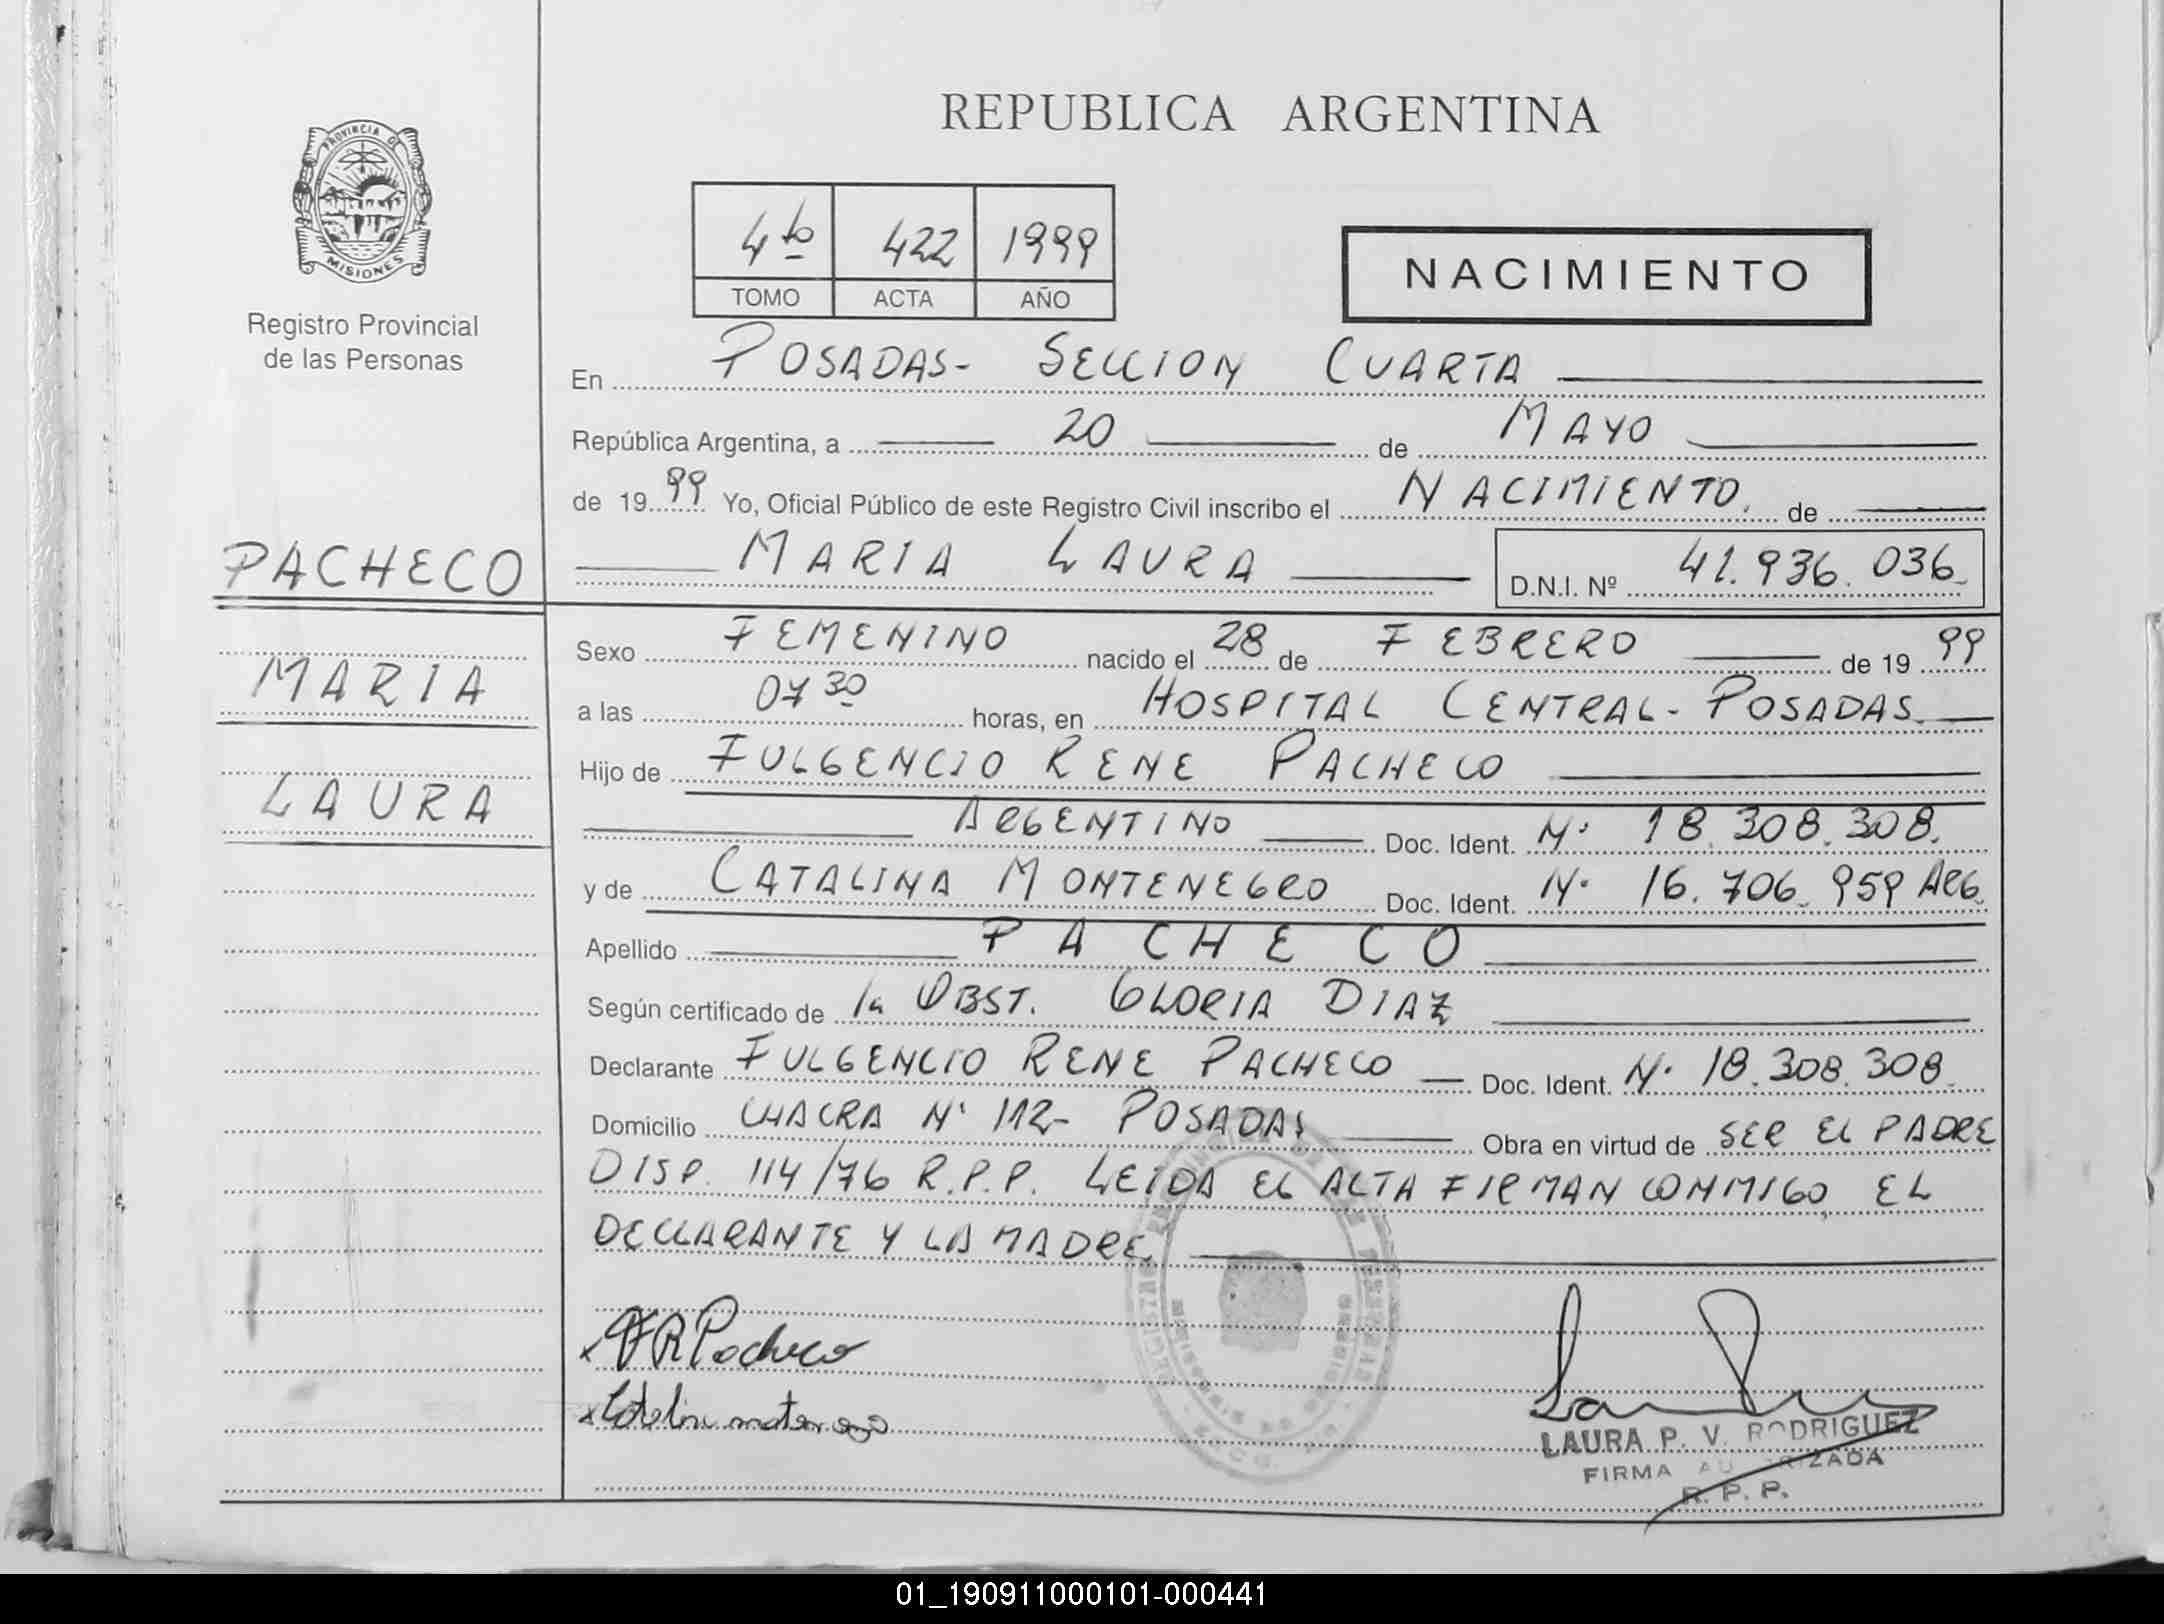 REPUBLICA ARGENTINA
PROVINCIA DE
MISIONES
Registro Provincial
de las Personas
4to 422 1999
TOMO ACTA AÑO
NACIMIENTO
En POSADAS- SECCION CUARTA
República Argentina, a 20 de MAYO
de 1999 Yo, Oficial Público de este Registro Civil inscribo el NACIMIENTO. de
MARIA LAURA D.N.I. Nº 41.936.036
PACHECO
MARIA
LAURA
Sexo FEMENINO nacido el 28 de FEBRERO de 1999
a las 07 30 horas, en HOSPITAL CENTRAL- POSADAS.
Hijo de FULGENCIO RENE PACHECO
ARGENTINO Doc. Ident. Nº 18.308.308.
y de CATALINA MONTENEGRO Doc. Ident. Nº 16.706.959 ARG.
Apellido PACHECO
Según certificado de la OBST. GLORIA DIAZ
Declarante FULGENCIO RENE PACHECO Doc. Ident. Nº 18.308.308.
Domicilio CHACRA Nº 112- POSADAS Obra en virtud de SER EL PADRE
DISP. 114/76 R.P.P. LEIDA EL ACTA FIRMAN CONMIGO, EL
DECLARANTE Y LA MADRE.
x FR Pacheco
LAURA P. V. RODRIGUEZ
FIRMA AUTORIZADA
R. P. P.
01_190911000101-000441